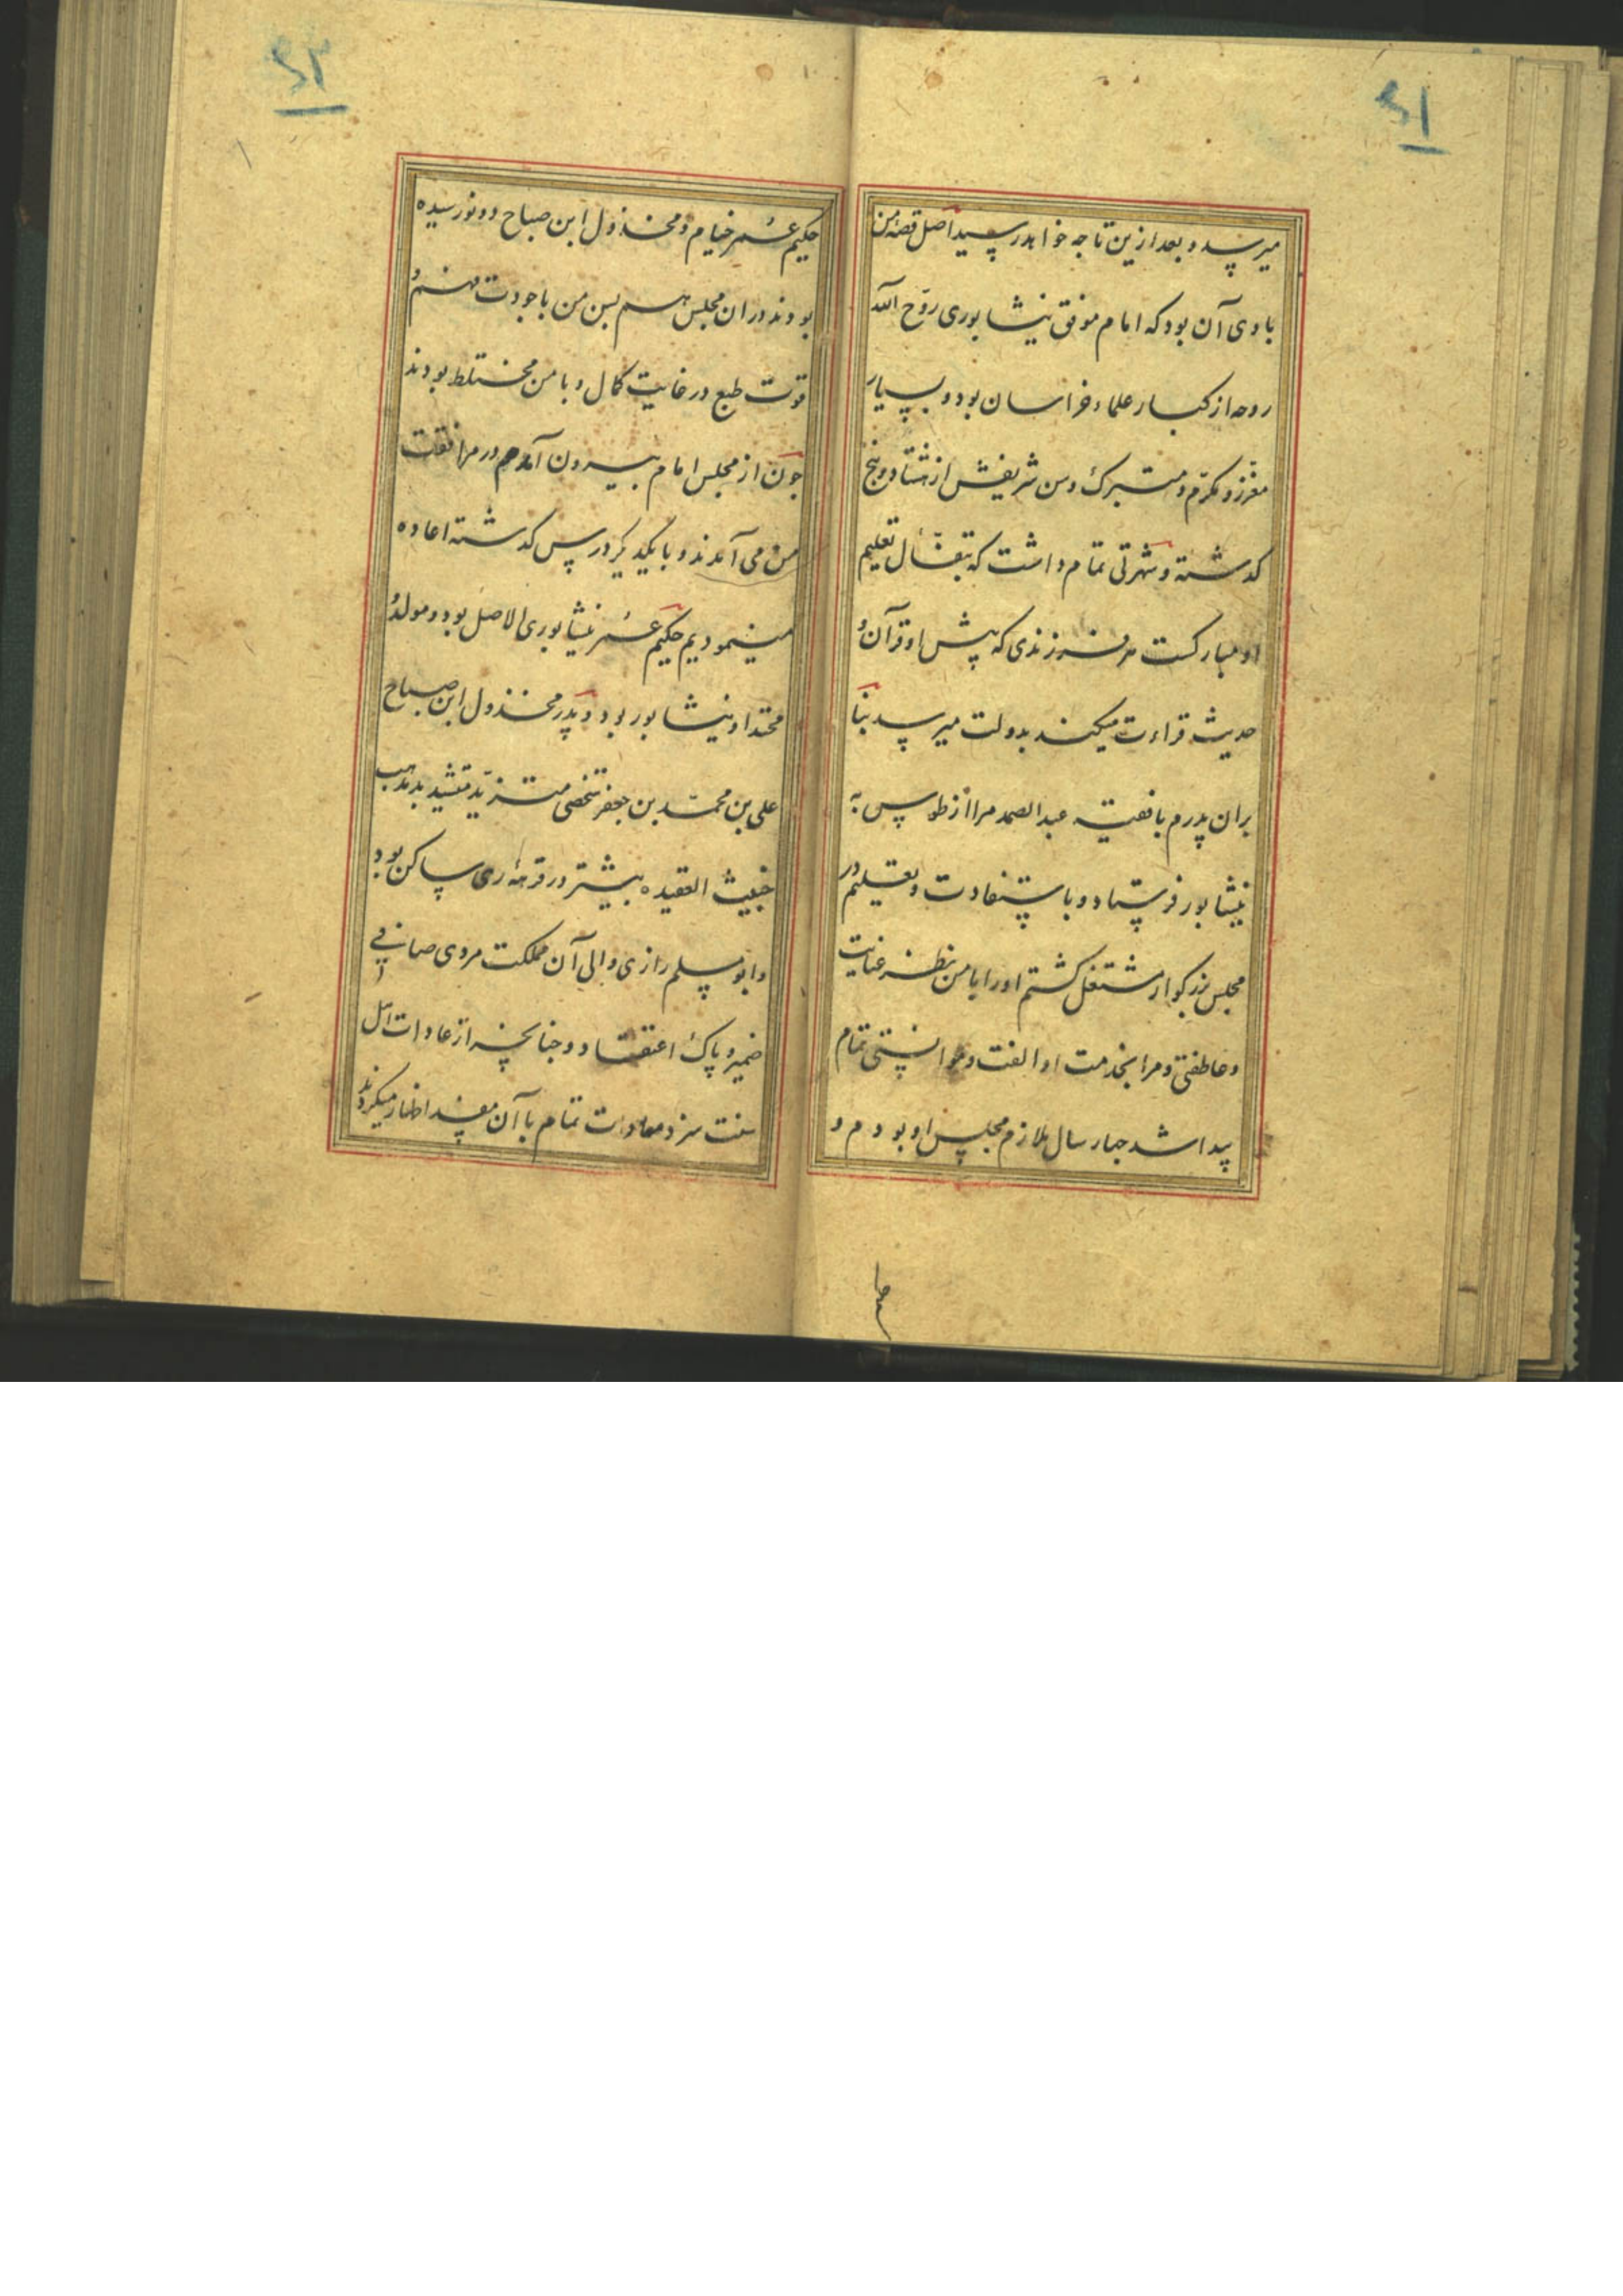 میرسد و بعد ازین تا چه خواهد رسید اصل قصهٔ من
با وی آن بود که امام موفق نیشابوری روّح الله
روحه از کبار علماء خراسان بود و بسیار
معزّز و مکرّم و متبرک و سن شریفش از هشتاد و پنج
کدشته و شهرتی تمام داشت که تعلیم
او مبارکست هر فرزندی که پیش او قرآن و
حدیث قراءت میکند بدولت میرسد بنا
بران پدرم با فقیه عبدالصمد مرا از طوس به
نیشابور فرستاد و باستفادت و تعلیم در
مجلس بزرکوار مشتغل کشتم او را با من بنظر عنایت
و عاطفتی و مرا بخدمت او الفت و موانستی تمام
پیدا شد جهار سال ملازم مجلس او بودم و
حکیم عمر خیام و مخذول ابن صباح دو نو رسیده
بودند دران مجلس هم بسن من با جودت فهم و
قوت طبع در غایت کمال و با من مختلط بودند
جون از مجلس امام بیرون آمدم در مرافقت
من می آمدند و با یکدیکر درس کدشته اعاده
مینمودیم حکیم عمر نیشابوری الاصل بود و مولد و
محتد او نیشابور بود و پدر مخذول ابن صباح
علی بن محمد بن جعفر شخصی متزیّد بدمذهب
خبیث العقیده بیشتر در ری ساکن بود
و ابو مسلم رازی والی آن مملکت مردی صافی
ضمیر و پاک اعتقاد و جنانجه از عادات اهل
سنت سزد معادات تمام با آن مفسد اظهار میکردند